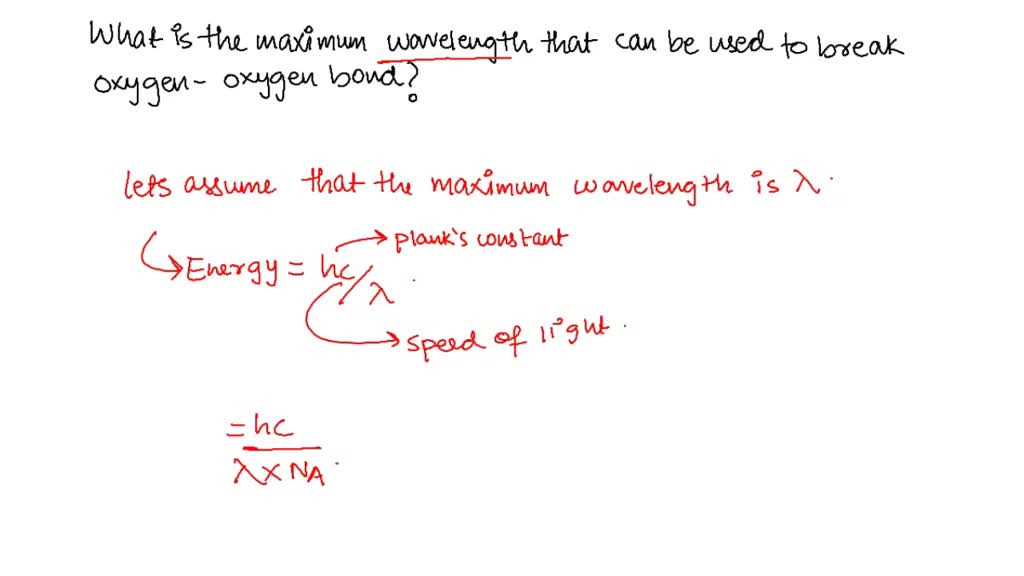 What is the maximum wavelength that can be used to break
oxygen- oxygen bond?
lets assume that the maximum wavelength is λ.
→ Energy = hc/λ
→ plank's constant
→ speed of light.
= hc
λ × NA